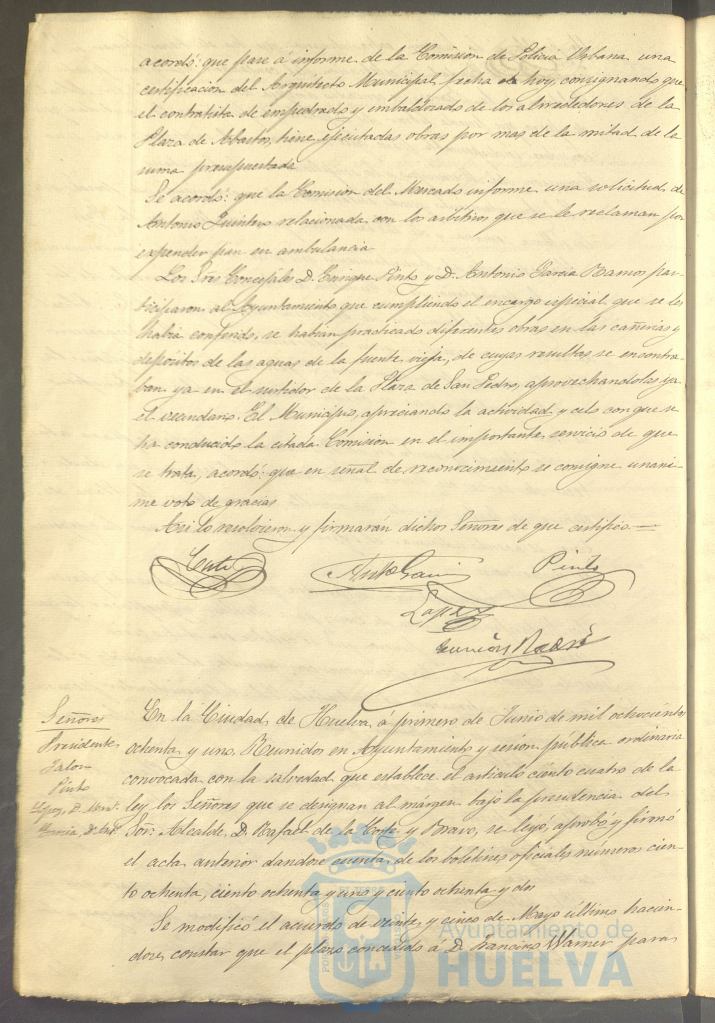 acordó: que pase á informe de la Comision de Policia Urbana una
certificacion del Arquitecto Municipal, fecha de hoy, consignando que
el contratista de empedrado y embaldosado de los alrrededores de la
Plaza de Abastos, tiene ejecutadas obras por mas de la mitad de la
suma presupuestada
Se acordó: que la Comision del Mercado informe una solicitud de
Antonio Quintero relacionada con los arbitrios que se le reclaman por
expender pan en ambulancia
Los Sres Concejales D. Enrique Pinto y D. Antonio Garcia Ramos par-
ticiparon al Ayuntamiento que cumpliendo el encargo especial que se les
habia conferido, se habian practicado diferentes obras en las cañerias y
depositos de las aguas de la fuente vieja, de cuyas resultas se encontra-
ban ya en el surtidor de la Plaza de San Pedro, aprovechandolas ya
el vecindario. El Municipio, apreciando la actividad y celo con que se
ha conducido la citada Comision en el importante servicio de que
se trata, acordó: que en señal de reconocimiento se consigne unani-
me voto de gracias
Asi lo resolvieron y firmarán dichos Señores de que certifico =
Pinto
Lopez
Señores
Presidente
Jalon
Pinto
Lopez, D.
Garcia, D. Ant.
En la Ciudad de Huelva á primero de Junio de mil ochocientos
ochenta y uno. Reunidos en Ayuntamiento y sesion pública ordinaria
convocada con la salvedad que establece el articulo ciento cuatro de la
ley los Señores que se designan al márgen bajo la presidencia del
Sor. Alcalde, D. Rafael de la Corte y Bravo, se leyó, aprobó y firmó
el acta anterior dandose cuenta de los boletines oficiales números cien-
to ochenta, ciento ochenta y uno y ciento ochenta y dos
Se modificó el acuerdo de veinte y cinco de Mayo último hacien-
dose constar que el plazo concedido á D. Francisco Warner para
Ayuntamiento de
HUELVA